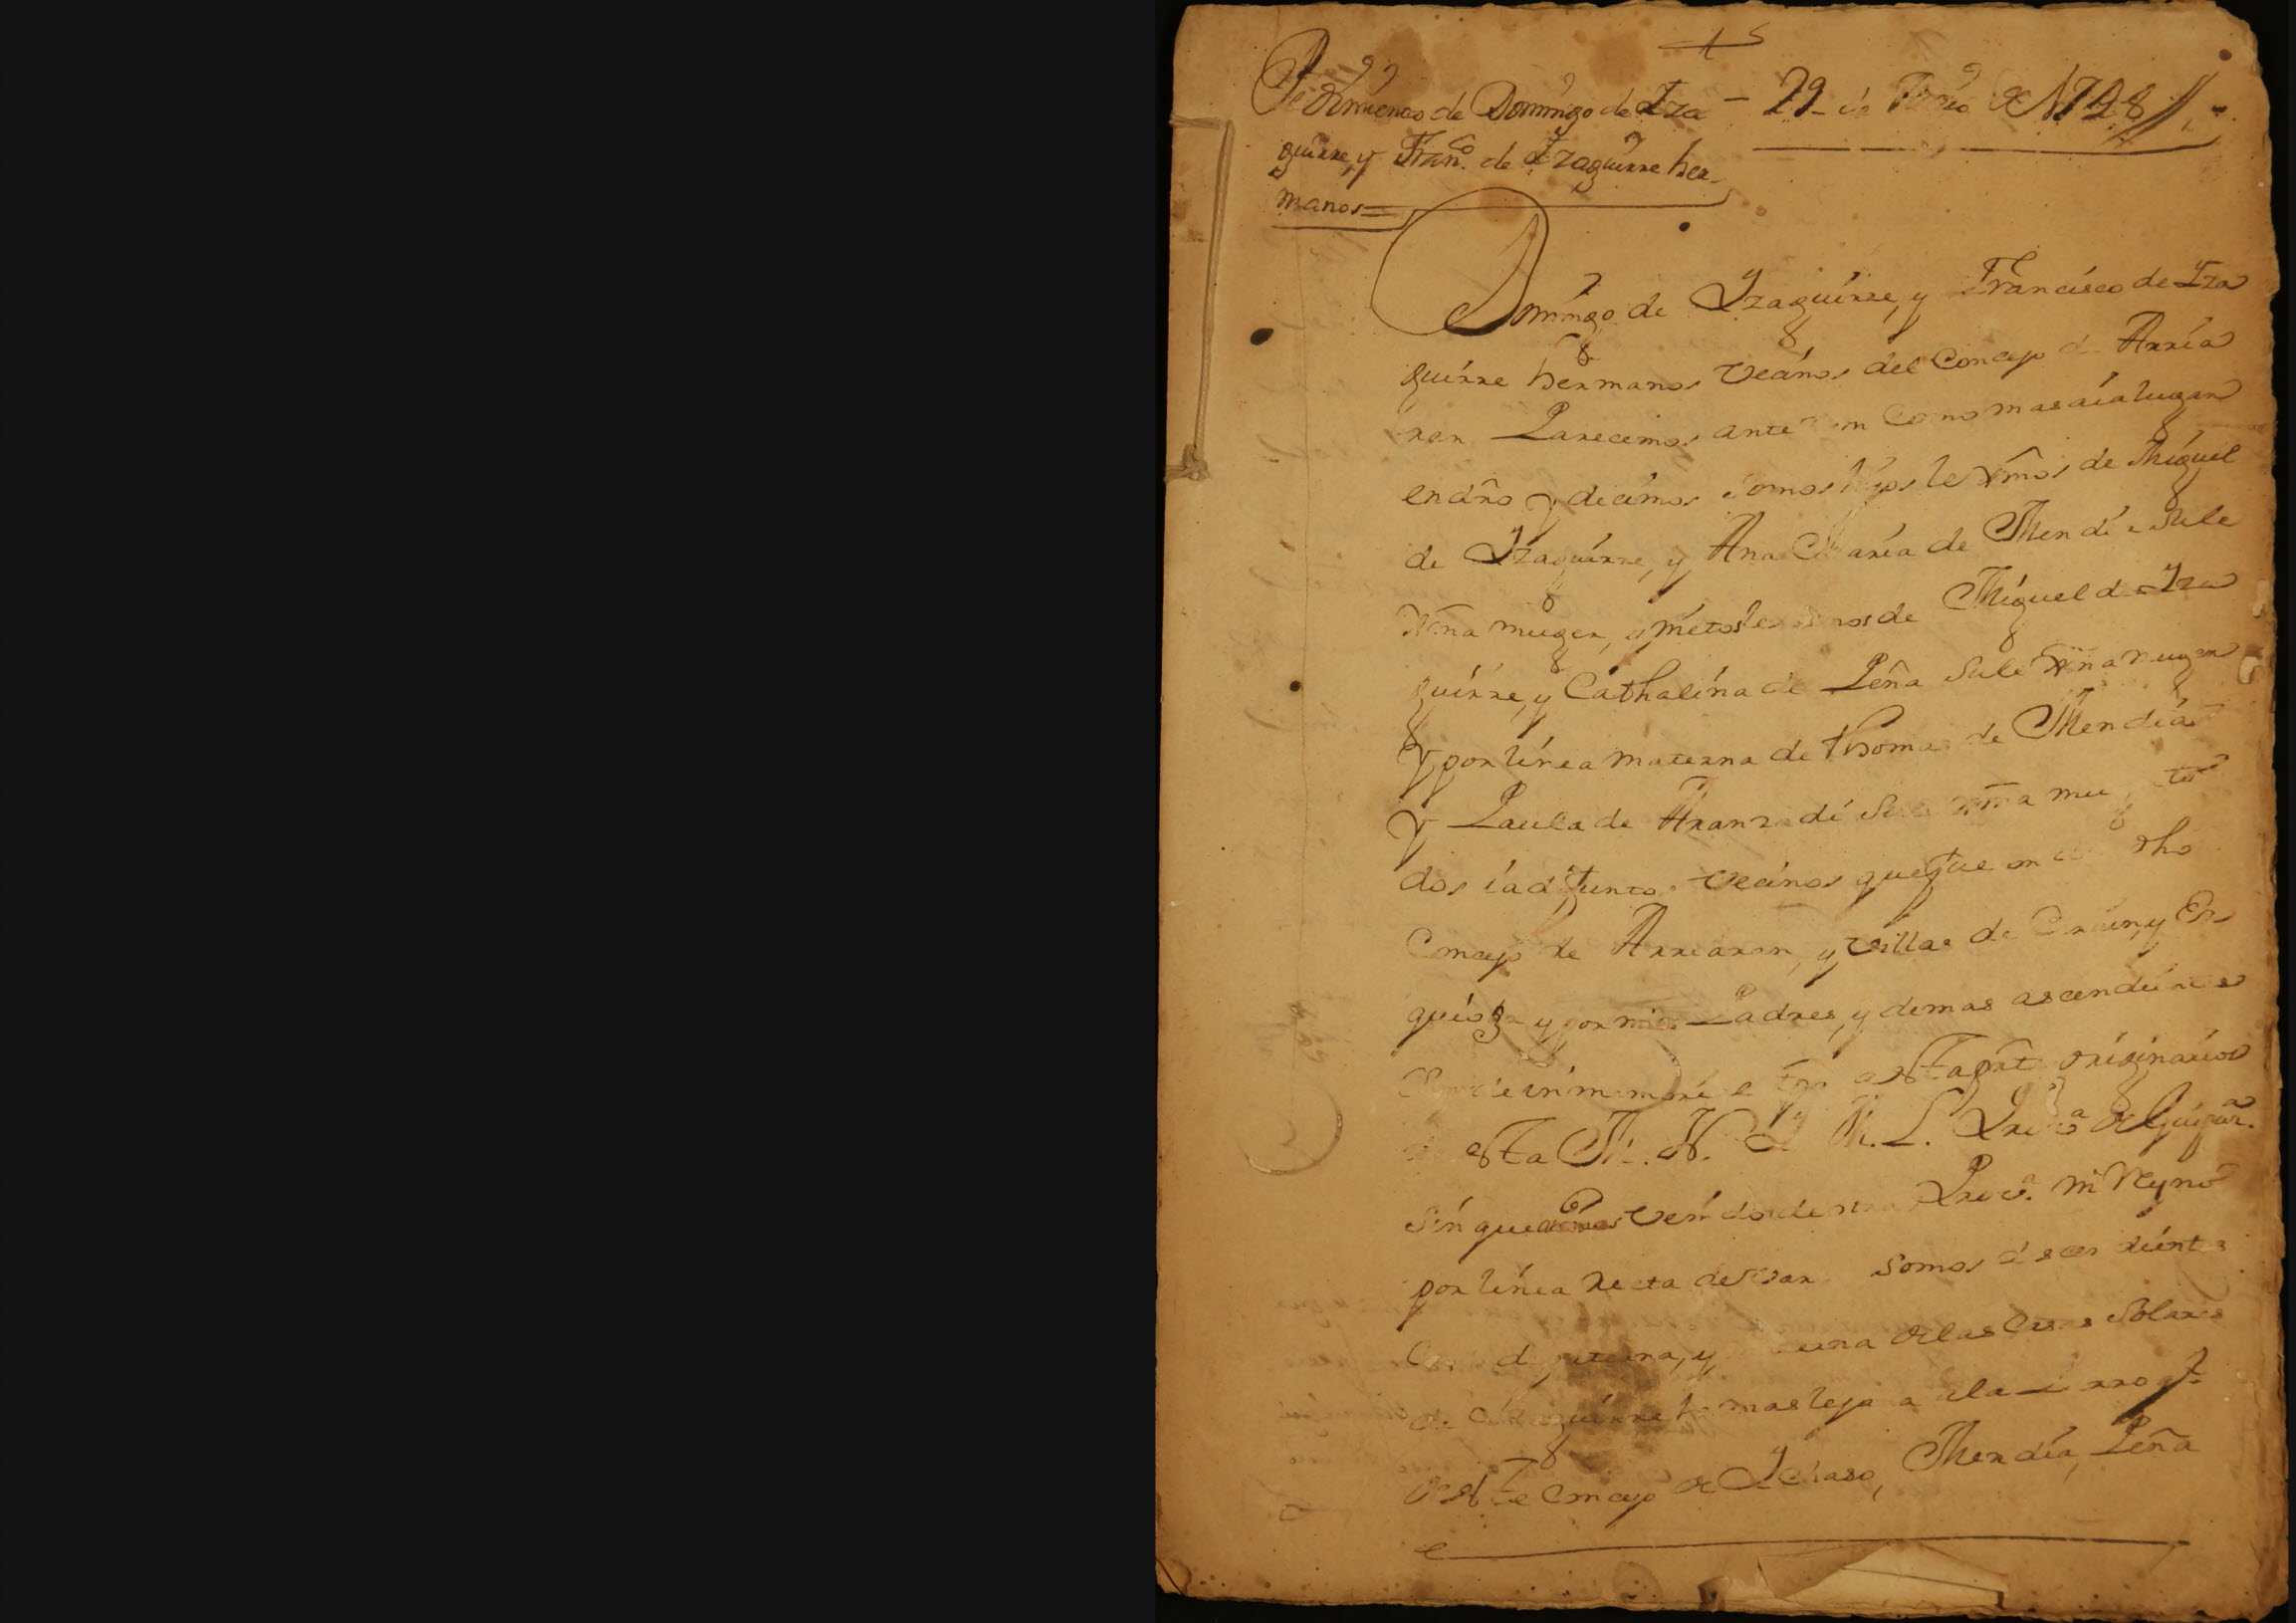 Pedimiento de Domingo de Yza - 29 de de 1728
guirre, y Franco. de Yzaguirre her-
manos =
Domingo de Yzaguirre, y Francisco de Yza
guirre hermanos vecinos del Concejo de Arria
ran Parecemos ante como mas aia lugar
en dro y decimos somos hijos lexmos de Miguel
de Yzaguirre, y Ana Maria de Mendia su le
xma muger, y nietos lexmos de Miguel de Yza
guirre, y Cathalina de Peña su lexma muger
y por linea materna de Thomas de Mendia
y Paula de Aranzadi su lexma mu to
dos vecinos que fueron de dho
Concejo de Arriaran, y villas de y Ez-
quioga y por mis Padres, y demas ascendientes
de inmemorial tpo a esta parte originarios
de esta M. N. y M. L. Prova de Guipuza.
sin que venido de otra Prova. ni Reyno
por linea recta de varon somos descendientes
paterna, y de las Casas Solares
de Yzaguirre
de este Concejo de Ychaso, Mendia, Peña